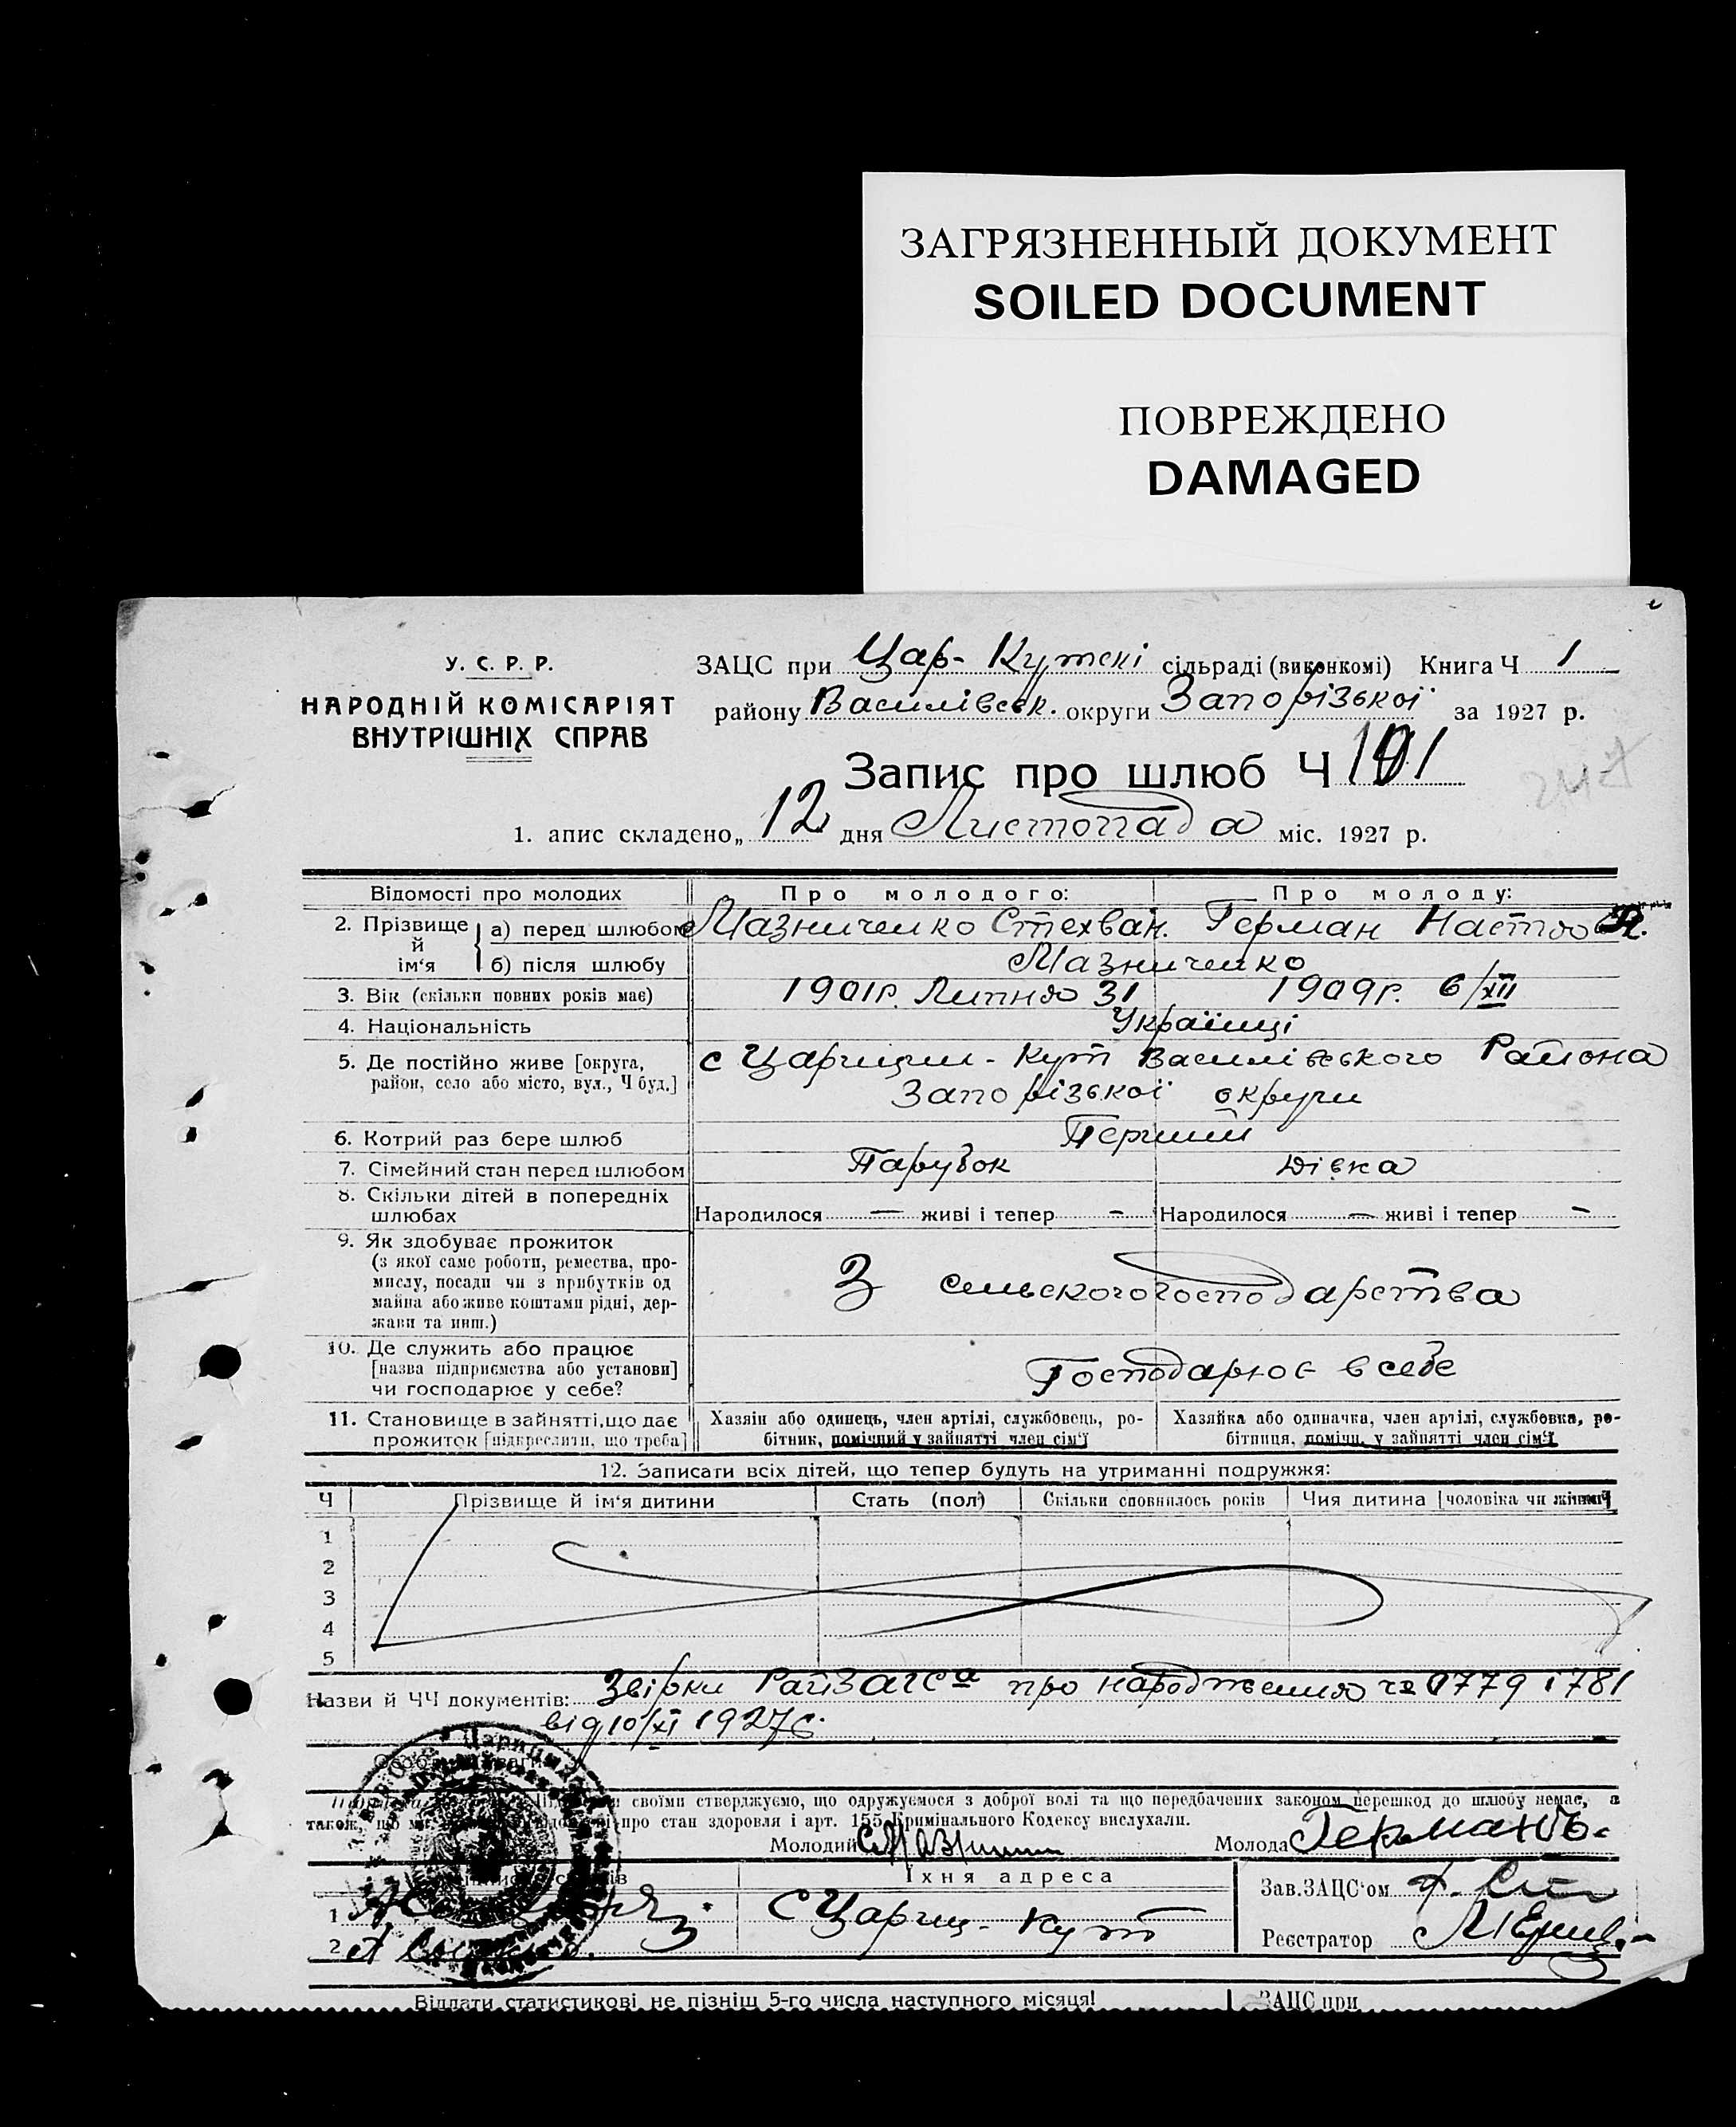 ЗАГРЯЗНЕННЫЙ ДОКУМЕНТ
SOILED DOCUMENT
ПОВРЕЖДЕНО
DAMAGED
У. С. Р. Р.
НАРОДНІЙ КОМІСАРІЯТ
ВНУТРІШНІХ СПРАВ
ЗАЦС при Цар-Кутскі сільраді (виконкомі) Книга Ч 1
району Василівськ. округи Запорізької за 1927 р.
Запис про шлюб Ч 101
1. апис складено „ 12 дня Листопада міс. 1927 р.
Відомості про молодих Про молодого: Про молоду:
2. Прізвище й ім'я а) перед шлюбом Мазниченко Стехван. Герман Настя
б) після шлюбу Мазниченко
3. Вік (скільки повних років має) 1901р. Липня 31 1909г. 6/XII
4. Національність Українці
5. Де постійно живе [округа, район, село або місто, вул., Ч буд.] с Царицин-Кут Василівського Района
Запорізької округи
6. Котрий раз бере шлюб Перший
7. Сімейний стан перед шлюбом Парубок Дівка
8. Скільки дітей в попередніх шлюбах Народилося — живі і тепер - Народилося — живі і тепер -
9. Як здобуває прожиток
(з якої саме роботи, ремества, про-
мислу, посади чи з прибутків од
майна або живе коштами рідні, дер-
жави та инш.) З сельскогогосподарства
10. Де служить або працює
[назва підприємства або установи]
чи господарює у себе? Господарює в себе
11. Становище в зайнятті, що дає
прожиток [підкреслити, що треба]
Хазяїн або одинець, член артілі, службовець, ро-
бітник, помічний у зайнятті член сім'ї
Хазяйка або одиначка, член артілі, службовка, ро-
бітниця, помічн. у зайнятті член сім'ї
12. Записати всіх дітей, що тепер будуть на утриманні подружжя:
Ч Прізвище й ім'я дитини Стать (пол) Скільки сповнилось років Чия дитина [чоловіка чи жінки]
1
2
3
4
5
Назви й ЧЧ документів: Звірки РайЗАГСа про народження 779 і 781
від 10/XI 1927
своїми стверджуємо, що одружуємося з доброї волі та що передбачених законом перешкод до шлюбу немає, а
також, що про стан здоровля і арт. 155 Кримінального Кодексу вислухали.
Молодий Молода Германъ
Їхня адреса
1
2
с Цариц-Кут
Зав.ЗАЦС'ом
Реєстратор
Віддати статистикові не пізніш 5-го числа наступного місяця! ЗАЦС при